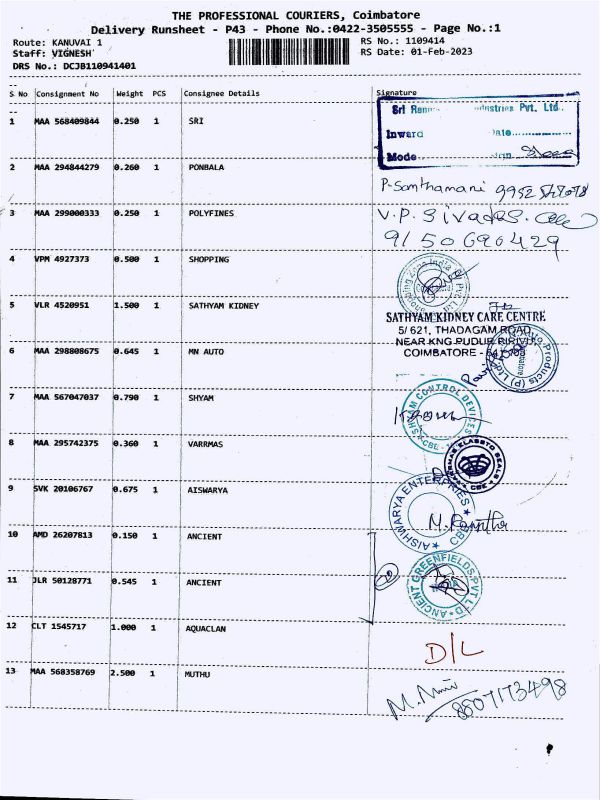 THE PROFESSIONAL COURIERS, Coimbatore
Delivery Runsheet - P43 - Phone No.:0422-3505555 - Page No.:1
Route: KANUVAI 1
RS No.: 1109414
Staff: VIGNESH
RS Date: 01-Feb-2023
DRS No.: DCJB110941401
S No Consignment No Weight PCS Consignee Details Signature
1 MAA 568409844 0.250 1 SRI
Sri Industries Pvt. Ltd.
Inward Date
Mode
2 MAA 294844279 0.260 1 PONBALA
P-Santhamani
3 MAA 299000333 0.250 1 POLYFINES
V.P. Sivadas.
9150690429
4 VPM 4927373 0.500 1 SHOPPING
Shopping Zone India Pvt. Ltd
5 VLR 4520951 1.500 1 SATHYAM KIDNEY
SATHYAM KIDNEY CARE CENTRE
5/ 621, THADAGAM ROAD
NEAR KNG PUDUR PIRIVU
COIMBATORE -
6 MAA 298808675 0.645 1 MN AUTO
Auto Products (P) Ltd
7 MAA 567047037 0.790 1 SHYAM
SHYAM CONTROL DEVICES
CBE
8 MAA 295742375 0.360 1 VARRMAS
VARRMAS ELASTO SEALS
CBE
9 SVK 20106767 0.675 1 AISWARYA
AISHWARYA ENTERPRIES
CBE
10 AMD 26207813 0.150 1 ANCIENT
11 JLR 50128771 0.545 1 ANCIENT
ANCIENT GREENFIELDS PVT LTD
12 CLT 1545717 1.000 1 AQUACLAN
D/L
13 MAA 568358769 2.500 1 MUTHU